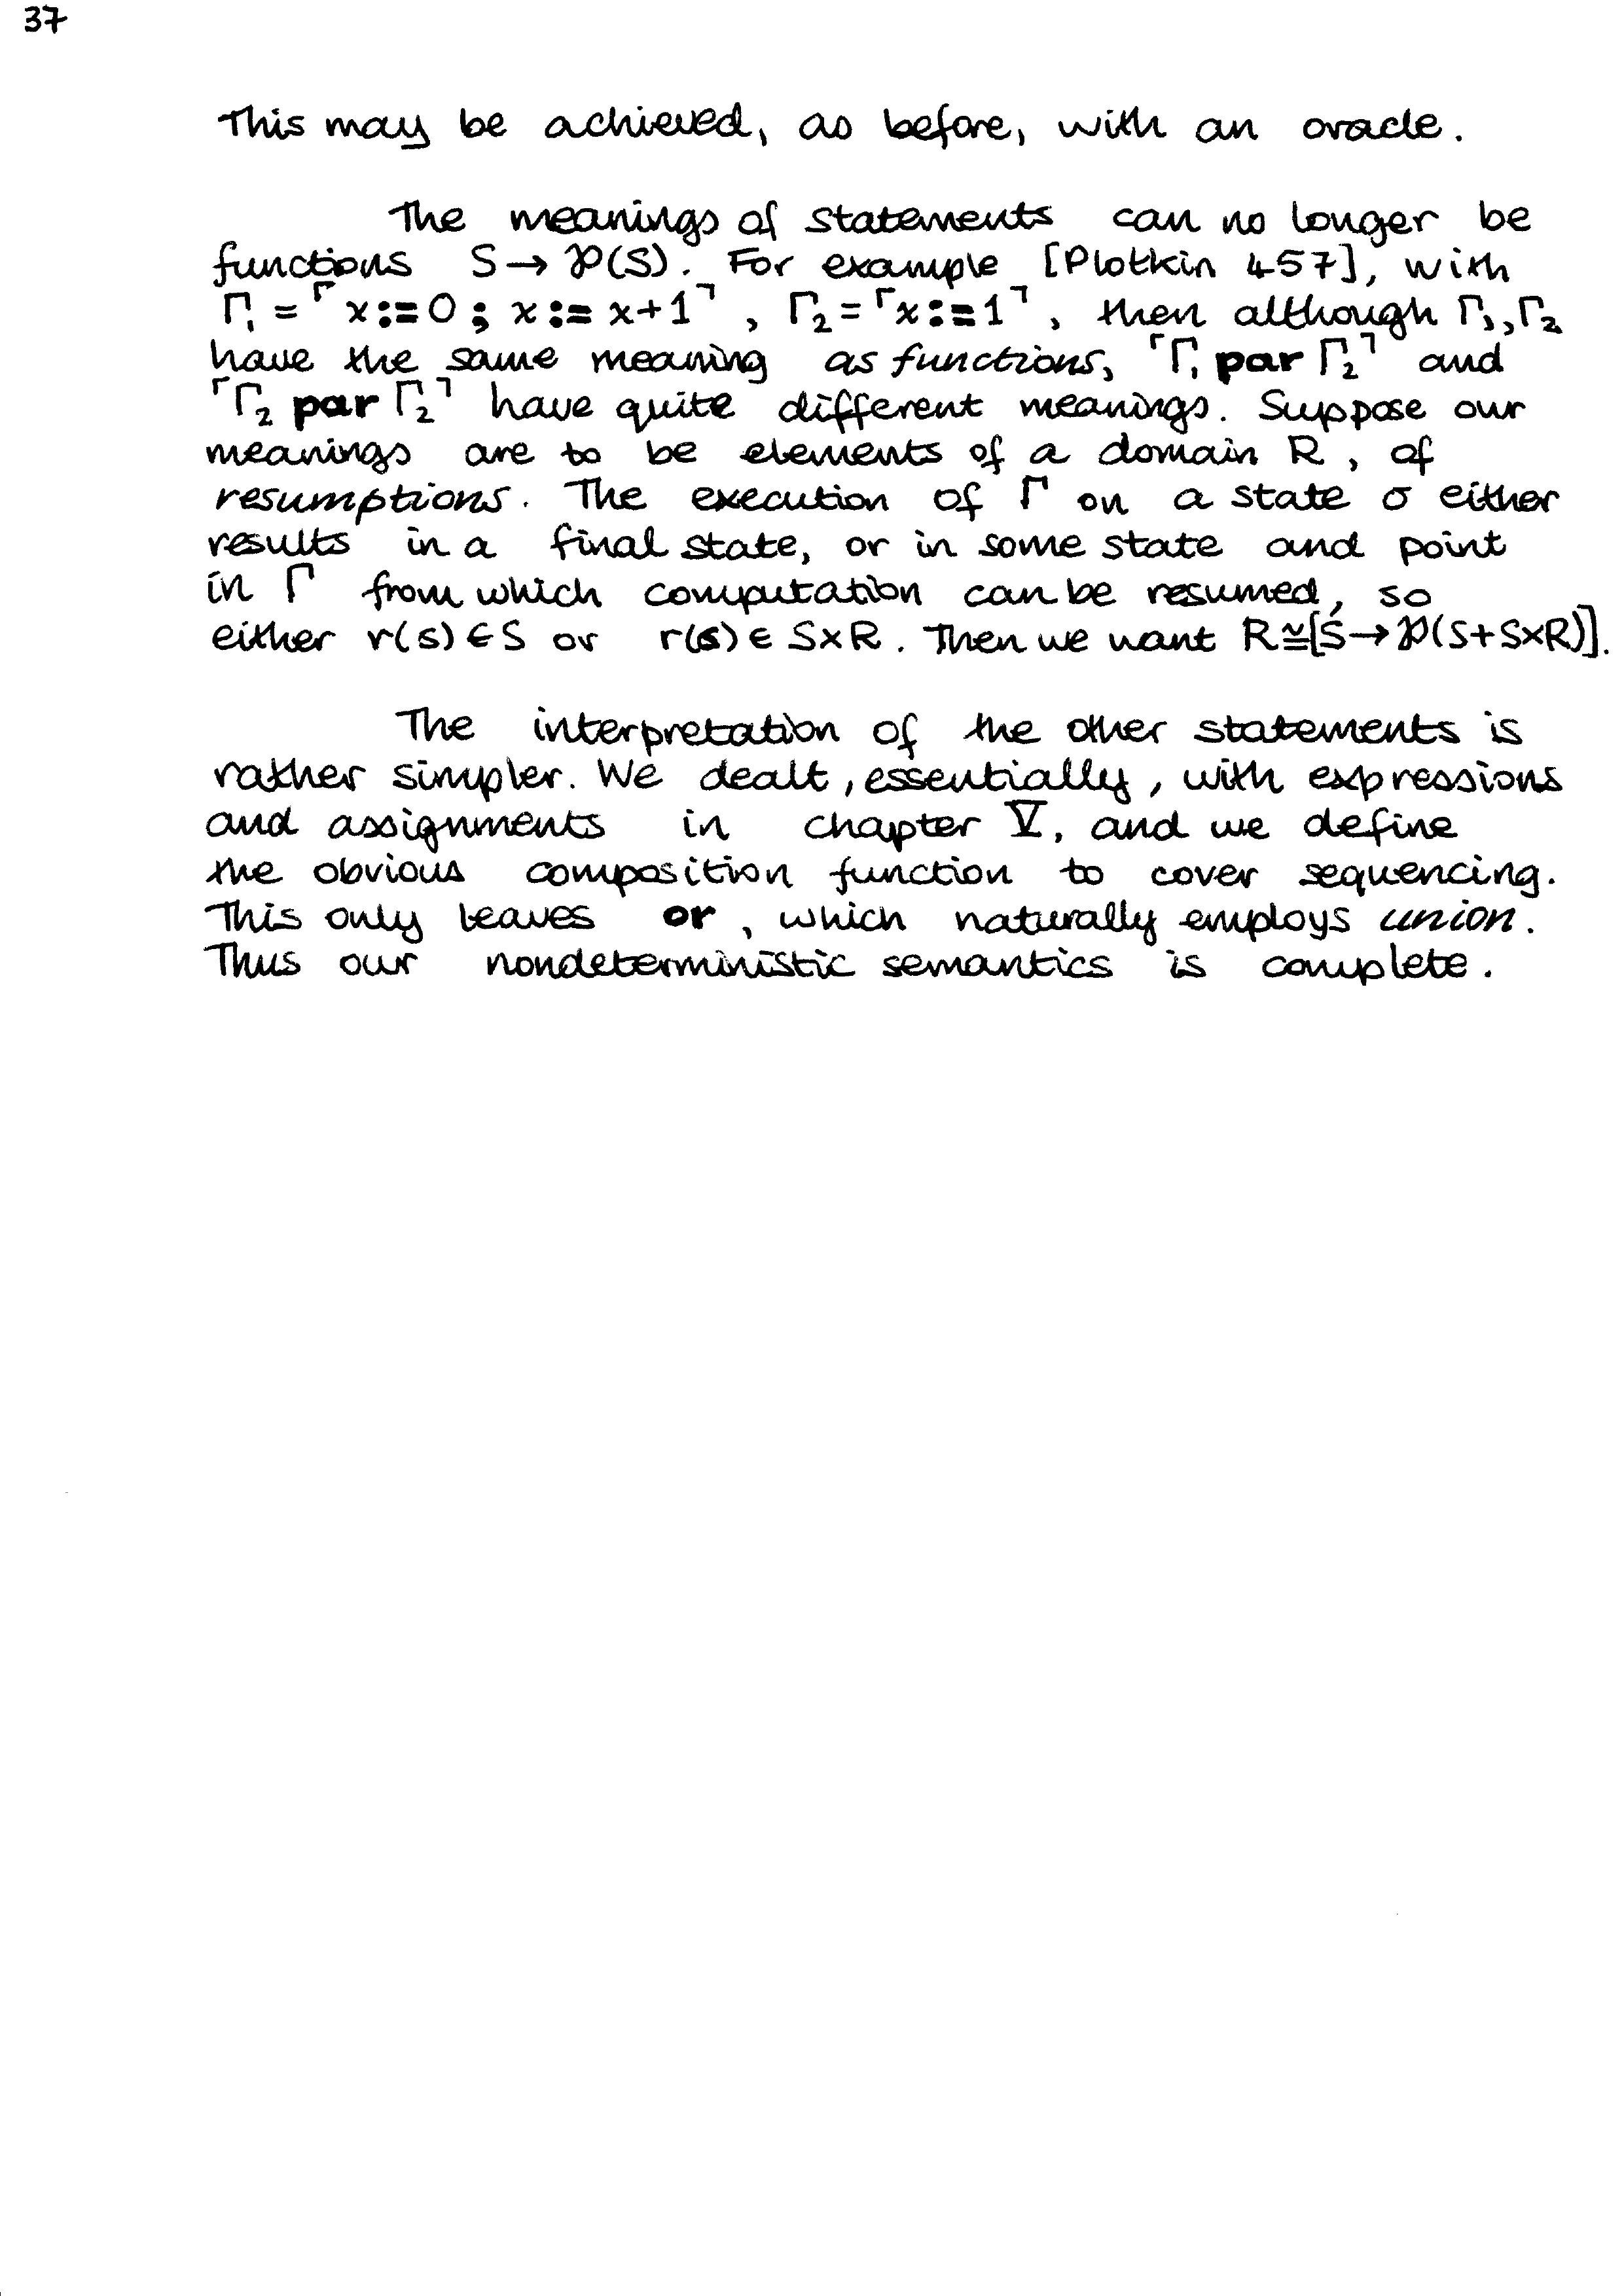 37
This may be achieved, as before, with an oracle.
The meanings of statements can no longer be
functions S→℘(S). For example [Plotkin 457], with
Γ₁ = ⌜x:=0; x:= x+1⌝, Γ₂=⌜x:=1⌝, then although Γ₁,Γ₂
have the same meaning as functions, ⌜Γ₁ par Γ₂⌝ and
⌜Γ₂ par Γ₂⌝ have quite different meanings. Suppose our
meanings are to be elements of a domain R, of
resumptions. The execution of Γ on a state σ either
results in a final state, or in some state and point
in Γ from which computation can be resumed, so
either r(s)∈S or r(s)∈S×R. Then we want R≅[S→℘(S+S×R)].
The interpretation of the other statements is
rather simpler. We dealt, essentially, with expressions
and assignments in chapter V, and we define
the obvious composition function to cover sequencing.
This only leaves or, which naturally employs union.
Thus our nondeterministic semantics is complete.